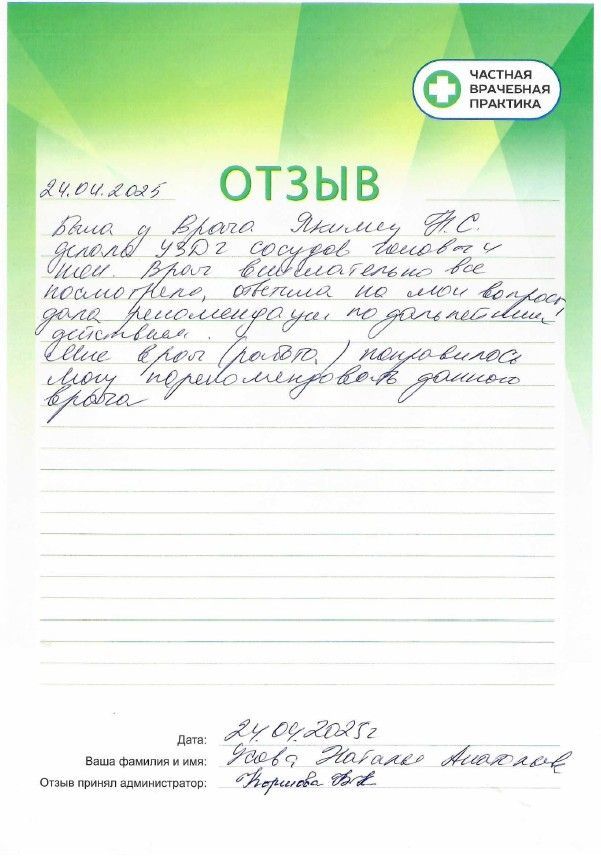 ЧАСТНАЯ
ВРАЧЕБНАЯ
ПРАКТИКА
ОТЗЫВ
24.04.2025
Была у Врача Якимец Н.С.
делала УЗДГ сосудов головы и
шеи. Врач внимательно все
посмотрела, ответила на мои вопросы
дала рекомендации по дальнейшим
действиям.
Мне врач (работа) понравилось
Могу порекомендовать данного
врача
Дата: 24.04.2025г
Ваша фамилия и имя: Наталья
Отзыв принял администратор: